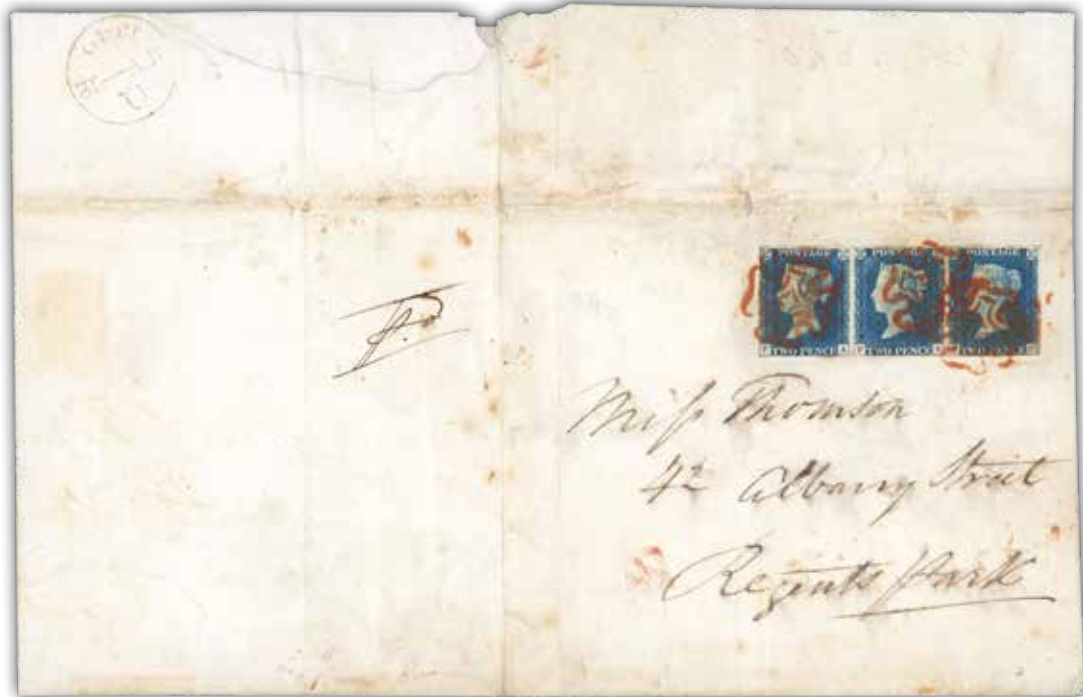 POSTAGE POSTAGE POSTAGE
TWO PENCE TWO PENCE TWO PENCE
Miſs Thomson
42 Albany Street
Regents Park